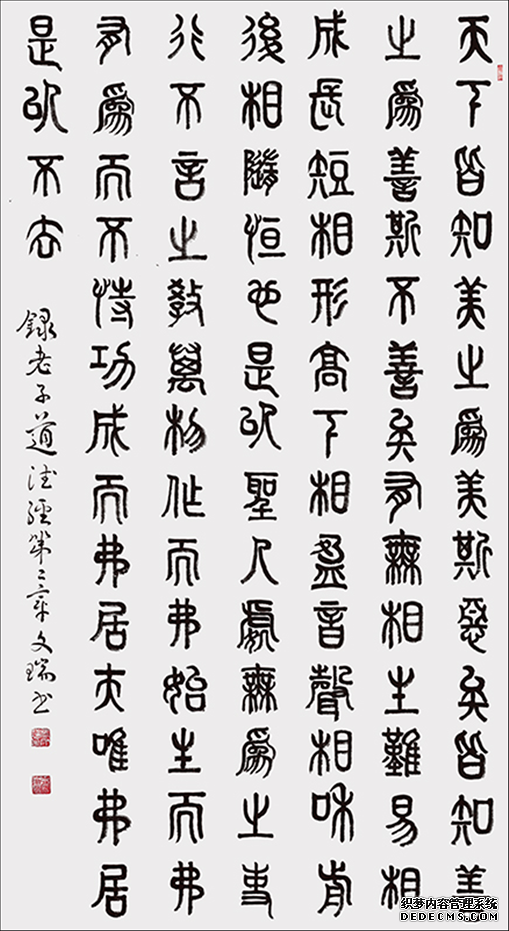 天下皆知美之爲美斯惡矣皆知善
之爲善斯不善矣有無相生難易相
成長短相形高下相盈音聲相和前
後相隨恒也是以聖人處無爲之事
行不言之教萬物作而弗始生而弗
有爲而不恃功成而弗居夫唯弗居
是以不去
錄老子道德經第二章文瑞书
织梦内容管理系统
DEDECMS.COM